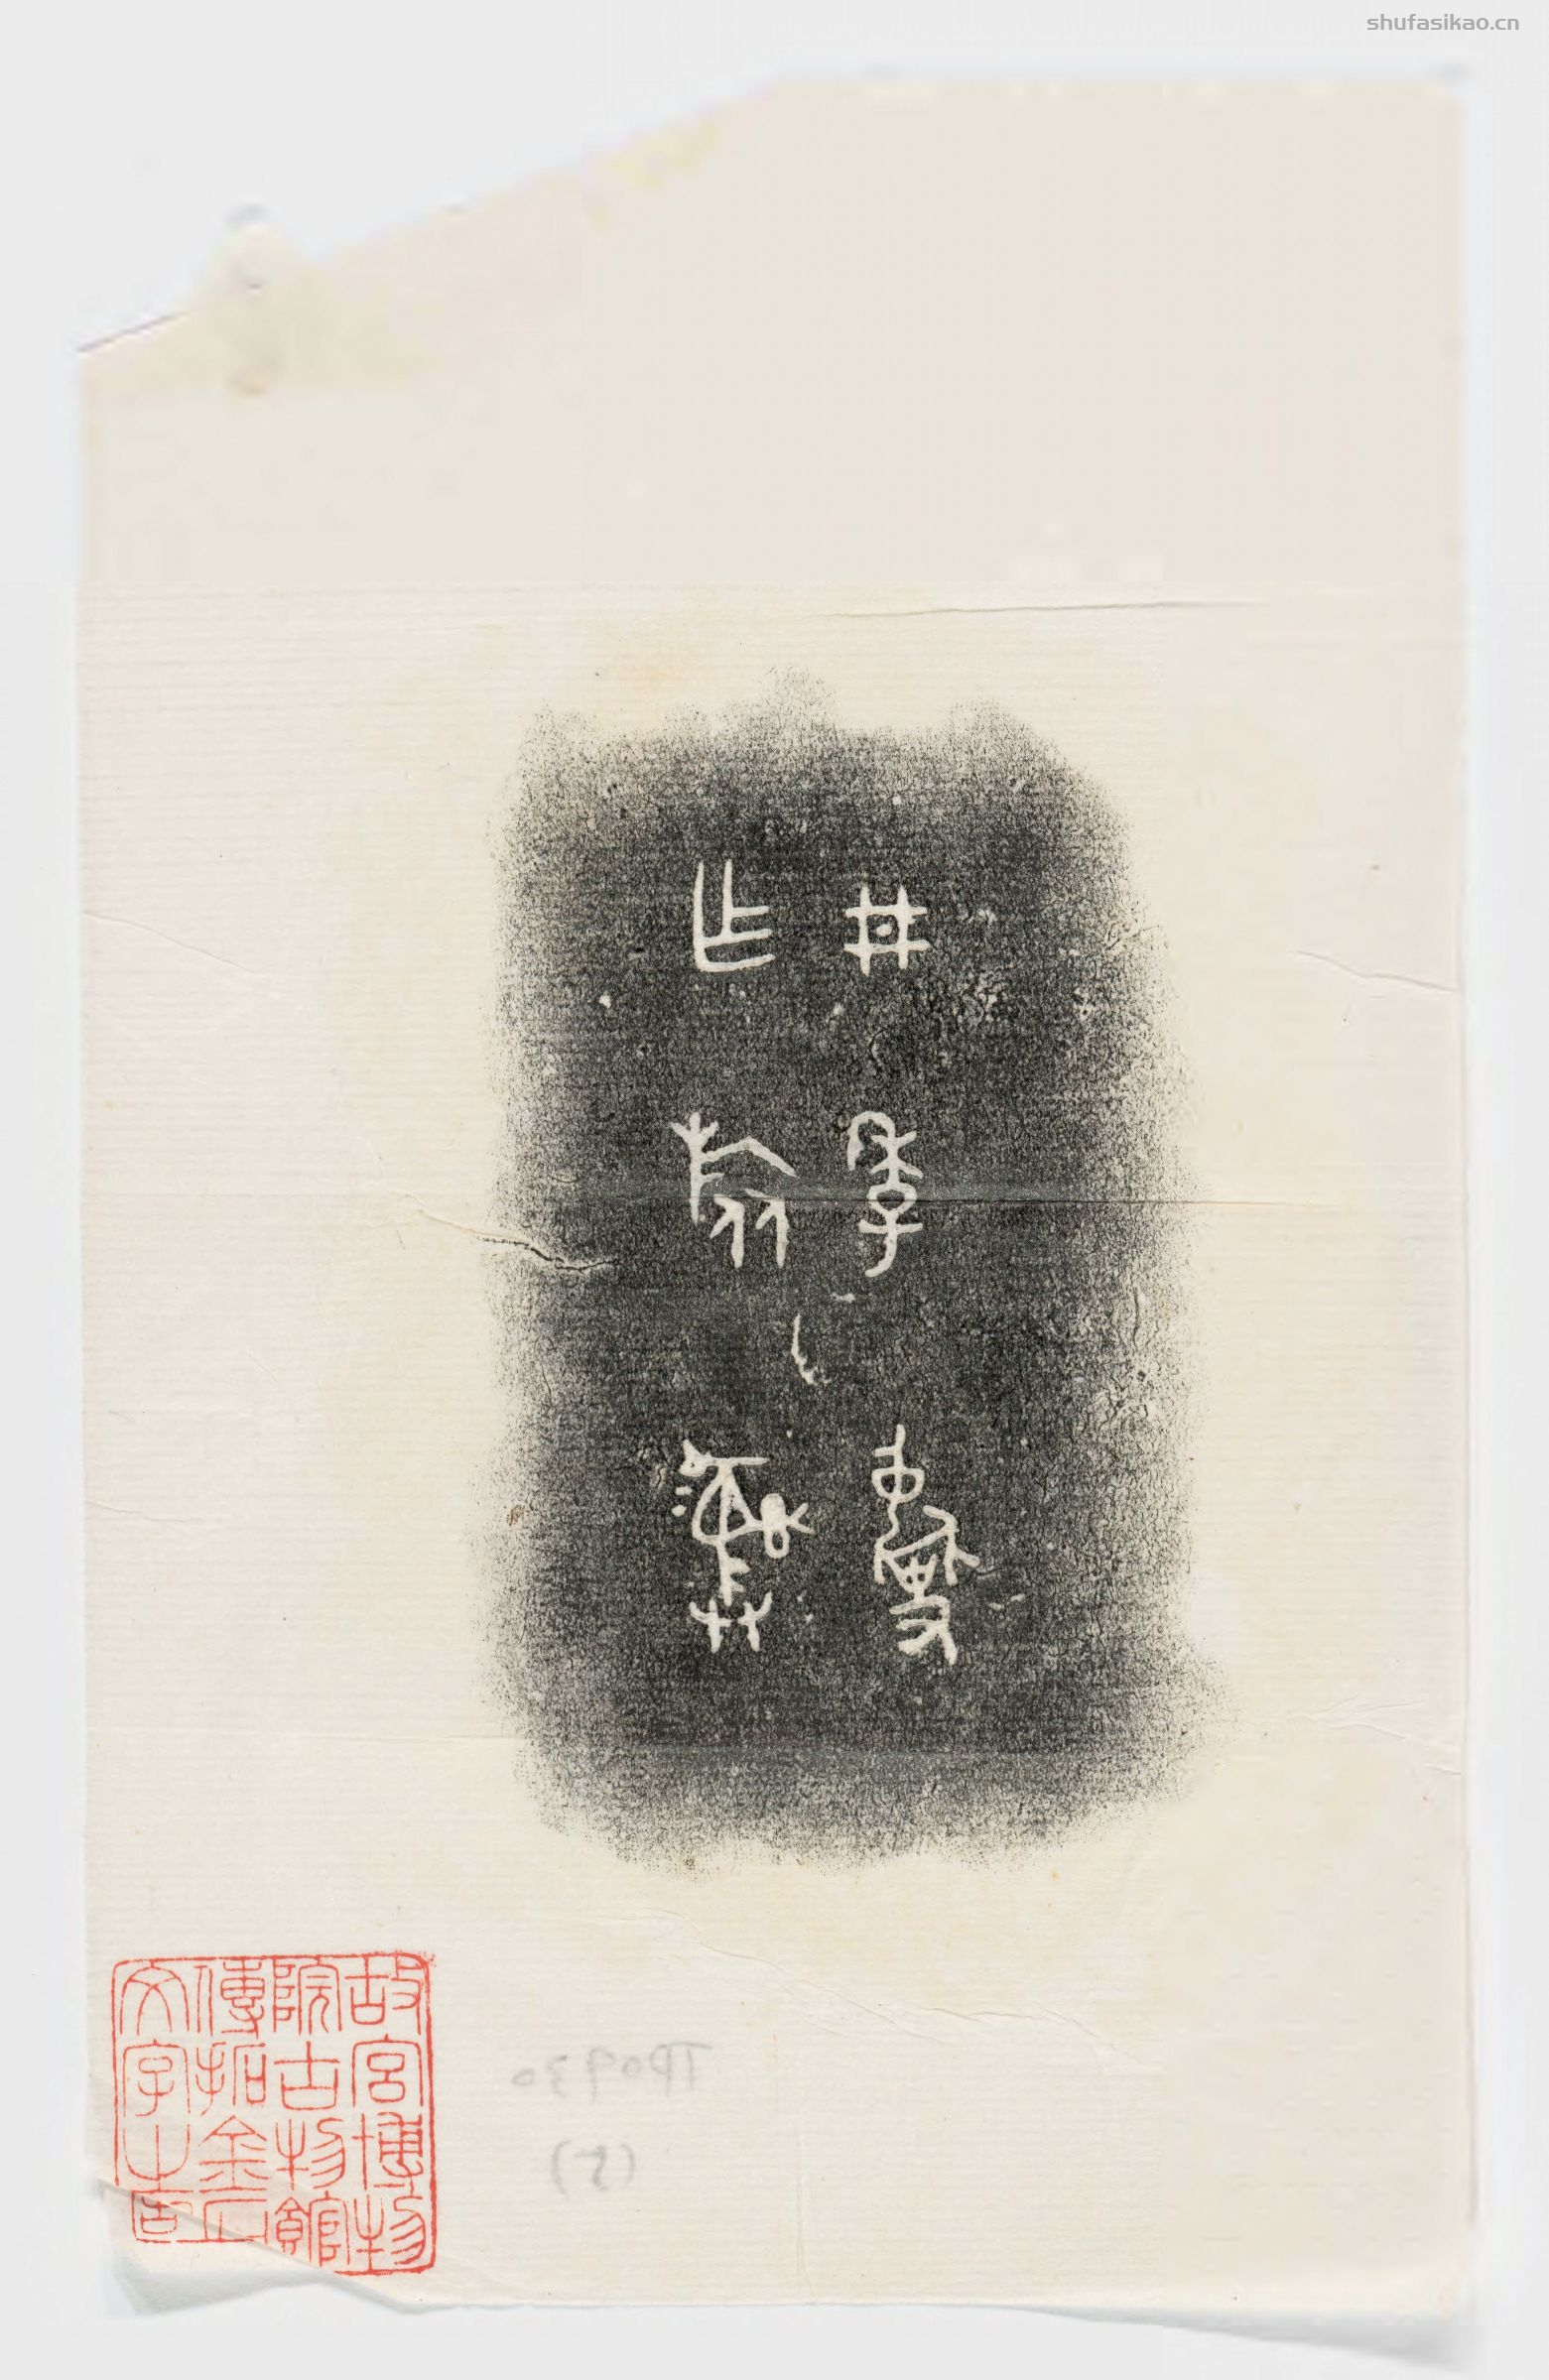 shufasikao.cn
井季夐
乍旅彝
故宮博物
院古物館
傳拓金石
文字之
TP0930